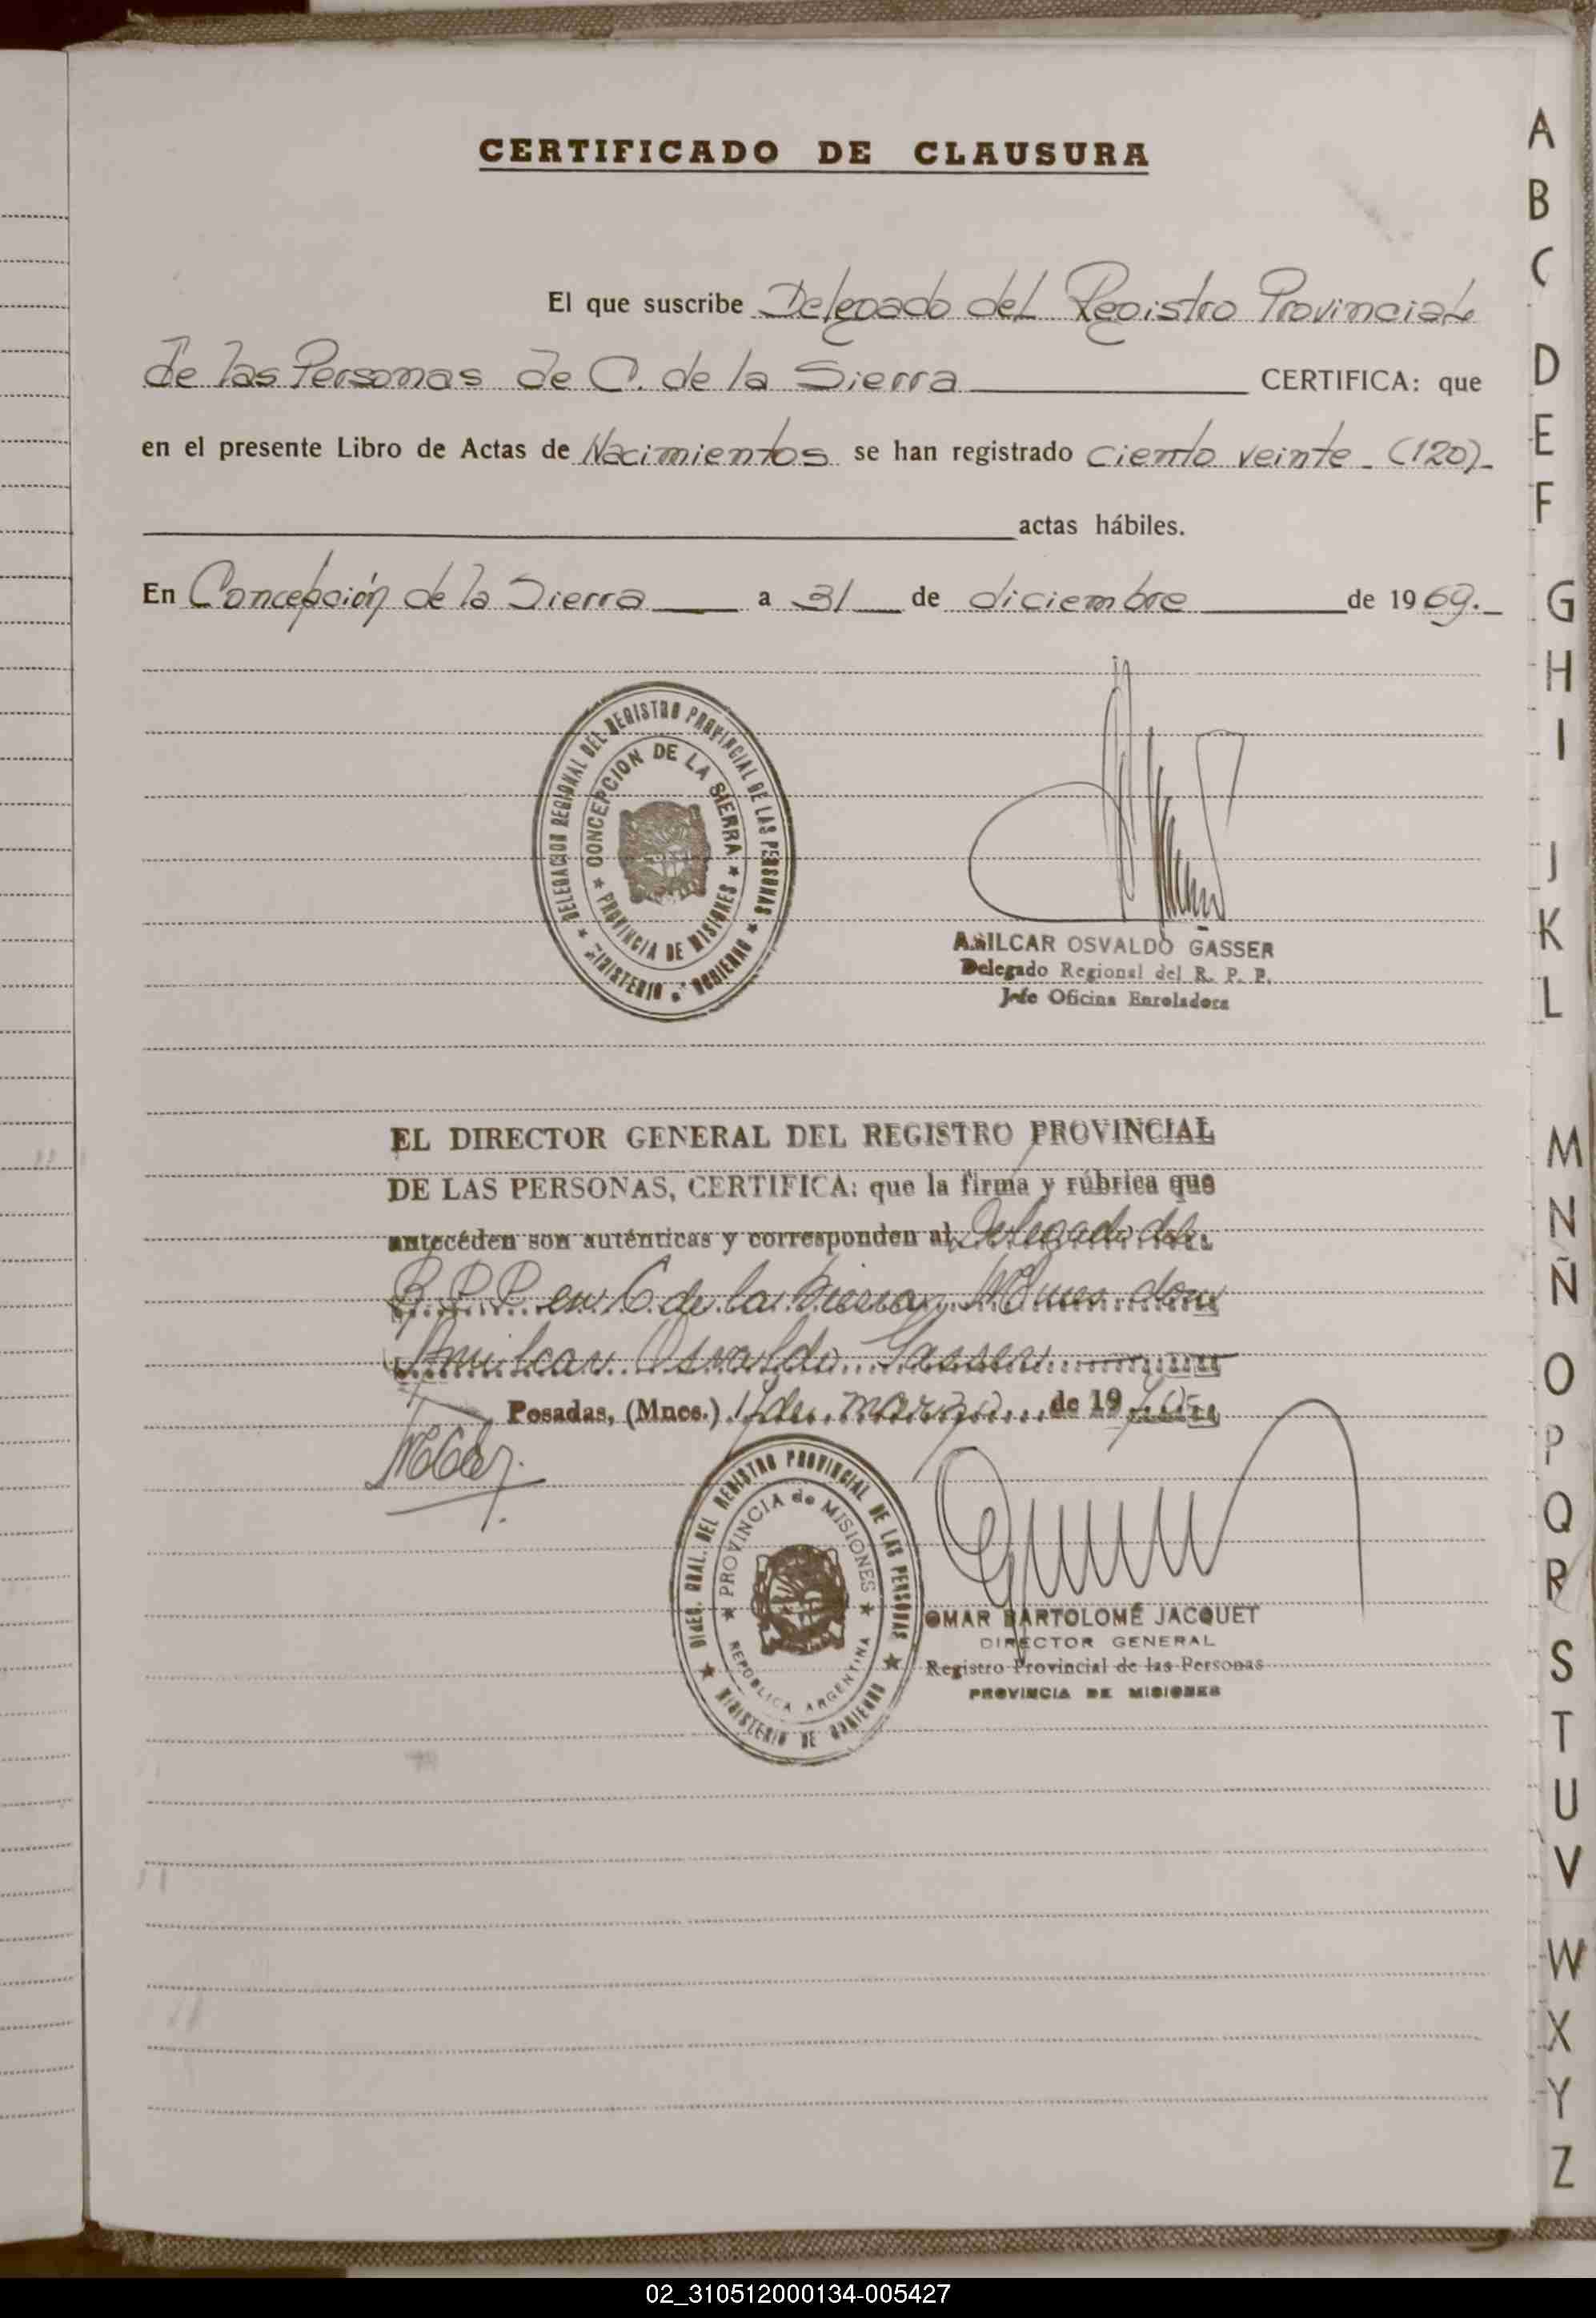 CERTIFICADO DE CLAUSURA
El que suscribe Delegado del Registro Provincial
de las Personas de C. de la Sierra CERTIFICA: que
en el presente Libro de Actas de Nacimientos se han registrado ciento veinte - (120)-
actas hábiles.
En Concepción de la Sierra a 31 de diciembre de 1969.-
DELEGACION REGIONAL DEL REGISTRO PROVINCIAL DE LAS PERSONAS
CONCEPCION DE LA SIERRA
PROVINCIA DE MISIONES
MINISTERIO GOBIERNO
AMILCAR OSVALDO GASSER
Delegado Regional del R. P. P.
Jefe Oficina Enroladora
EL DIRECTOR GENERAL DEL REGISTRO PROVINCIAL
DE LAS PERSONAS, CERTIFICA: que la firma y rúbrica que
anteceden son auténticas y corresponden al Delegado del
R.P.P. en C. de la Sierra, Mnes. don
Amilcar Osvaldo Gasser
Posadas, (Mnes.) 17 de marzo de 1970
DIREC. GRAL. DEL REGISTRO PROVINCIAL DE LAS PERSONAS
PROVINCIA de MISIONES
REPÚBLICA ARGENTINA
MINISTERIO DE GOBIERNO
OMAR BARTOLOMÉ JACQUET
DIRECTOR GENERAL
Registro Provincial de las Personas
PROVINCIA DE MISIONES
A
B
C
D
E
F
G
H
I
J
K
L
M
N
Ñ
O
P
Q
R
S
T
U
V
W
X
Y
Z
02_310512000134-005427